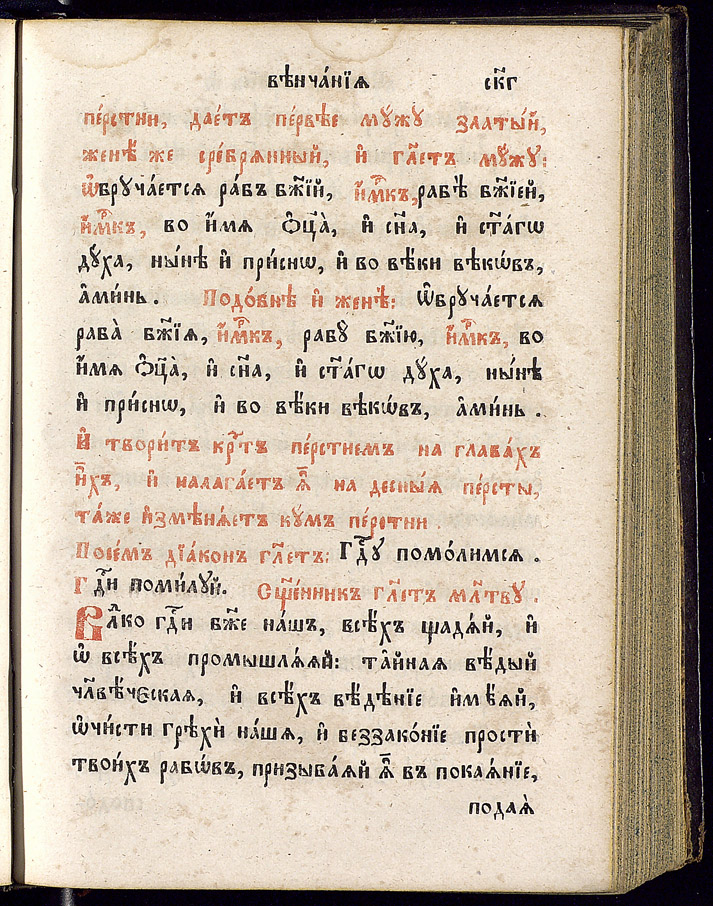 вѣнча́нїѧ ск҃г
пе́рстни, дае́тъ пе́рвѣе мꙋ́жꙋ златы́й,
женѣ́ же сре́брѧнный, и҆ гл҃етъ мꙋ́жꙋ:
ѡ҆брꙋча́етсѧ ра́бъ бж҃їй, и҆́м҃к, рабѣ̀ бж҃їей,
и҆́м҃къ, во и҆́мѧ ѻ҆ц҃а̀, и҆ сн҃а, и҆ ст҃а́гѡ
дꙋ́ха, ны́нѣ и҆ при́снѡ, и҆ во вѣ́ки вѣкѡ́въ,
а҆ми́нь. Подо́бнѣ и҆ женѣ̀: Ѡ҆брꙋча́етсѧ
раба̀ бж҃їѧ, и҆́м҃къ, рабꙋ̀ бж҃їю, и҆́м҃къ, во
и҆́мѧ ѻ҆ц҃а̀, и҆ сн҃а, и҆ ст҃а́гѡ дꙋ́ха, ны́нѣ
и҆ при́снѡ, и҆ во вѣ́ки вѣкѡ́въ, а҆ми́нь.
И҆ твори́тъ крⷭ҇тъ пе́рстнемъ на глава́хъ
и҆́хъ, и҆ налага́етъ ѧ҆̀ на десны́ѧ пе́рсты,
та́же и҆змѣнѧ́етъ кꙋмъ пе́рстни
Посе́мъ дїа́конъ гл҃етъ: Гд҃ꙋ помо́лимсѧ.
Гд҃и поми́лꙋй. Сщ҃е́нникъ гл҃етъ мл҃твꙋ.
Вл҃ко гд҃и бж҃е на́шъ, всѣ́хъ щадѧ́й, и҆
ѡ҆ всѣ́хъ промышлѧ́ѧй: та́йнаѧ вѣ́дый
чл҃вѣ́чєскаѧ, и҆ всѣ́хъ вѣ́дѣнїе и҆мѣ́ѧй,
ѡ҆чи́сти грѣхѝ на́шѧ, и҆ беззако́нїе простѝ
твои́хъ рабѡ́въ, призыва́ѧй ѧ҆̀ в покаѧ́нїе,
подаѧ̀